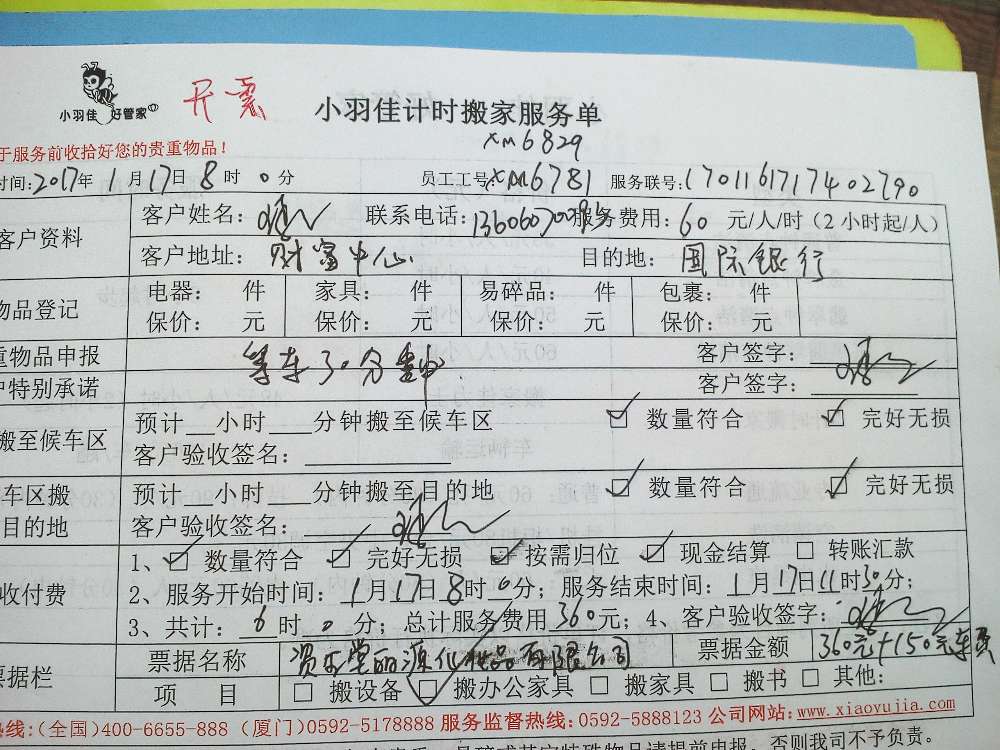 小羽佳 好管家
开票
小羽佳计时搬家服务单
XM6829
于服务前收拾好您的贵重物品！
时间:2017年1月17日8时0分 员工工号:XM6781 服务联号:1701161717402790
客户资料
客户姓名: 联系电话: 服务费用:60元/人/时(2小时起/人)
客户地址:财富中心 目的地:国际银行
物品登记
电器: 件 家具: 件 易碎品: 件 包裹: 件
保价: 元 保价: 元 保价: 元 保价: 元
重物品申报 等车30分钟 客户签字:
户特别承诺 客户签字:
搬至候车区
预计__小时___分钟搬至候车区 数量符合 完好无损
客户验收签名:
车区搬
目的地
预计__小时___分钟搬至目的地 数量符合 完好无损
客户验收签名:
收付费
1、数量符合 完好无损 按需归位 现金结算 转账汇款
2、服务开始时间:1月17日8时0分;服务结束时间:1月17日11时30分;
3、共计:6时0分;总计服务费用360元;4、客户验收签字:
票据栏
票据名称 资生堂丽源化妆品有限公司 票据金额 360元+150元车费
项 目 搬设备 搬办公家具 搬家具 搬书 其他:
热线:(全国)400-6655-888 (厦门)0592-5178888 服务监督热线:0592-5888123 公司网站:www.xiaoyujia.com
物品请提前申报,否则我司不予负责。